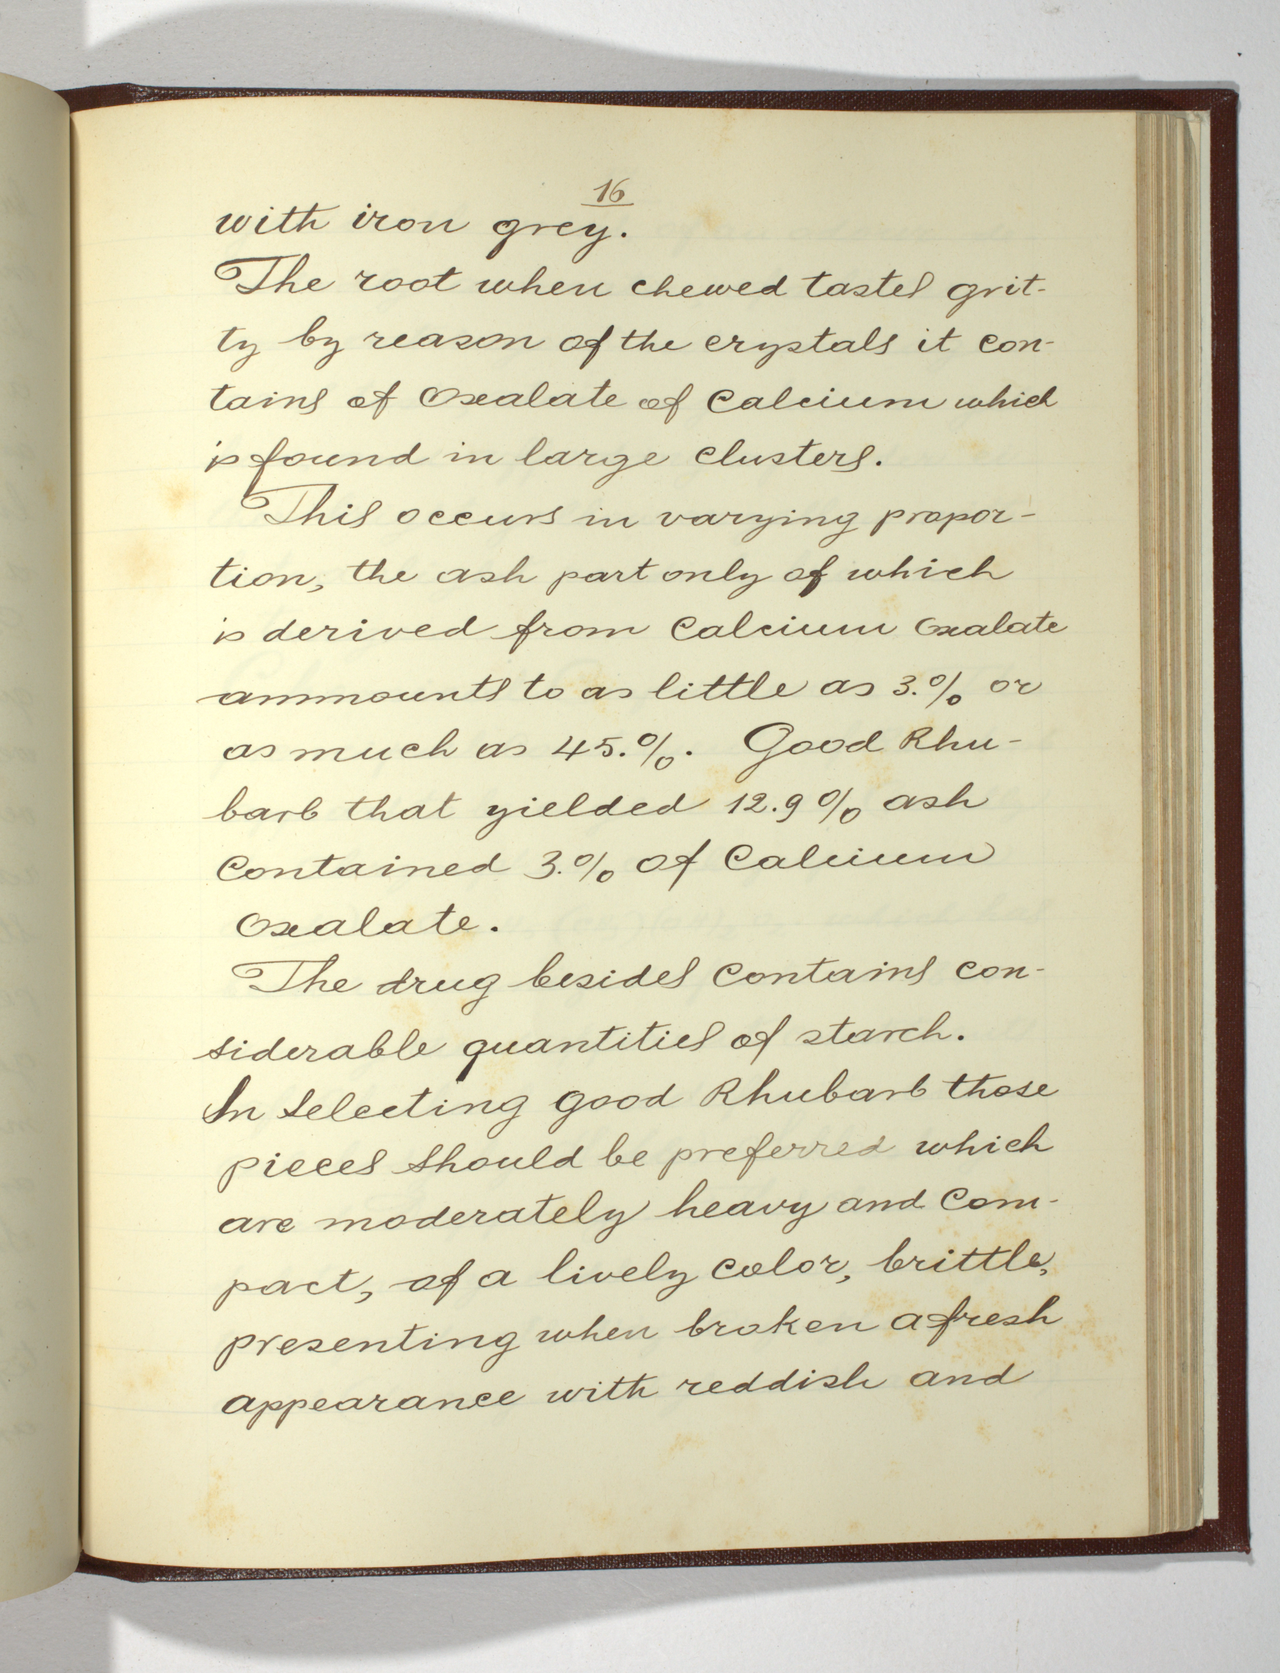 16
with iron grey.
The root when chewed tastes grit-
ty by reason of the crystals it con-
tains of Oxalate of Calcium which
is found in large clusters.
This occurs in varying propor-
tion, the ash part only of which
is derived from Calcium Oxalate
ammounts to as little as 3.% or
as much as 45.%. Good Rhu-
barb that yielded 12.9% ash
Contained 3.% of Calcium
Oxalate.
The drug besides Contains con-
siderable quantities of starch.
In Selecting good Rhubarb those
pieces should be preferred which
are moderately heavy and Com-
pact, of a lively Color, brittle,
presenting when broken a fresh
appearance with reddish and